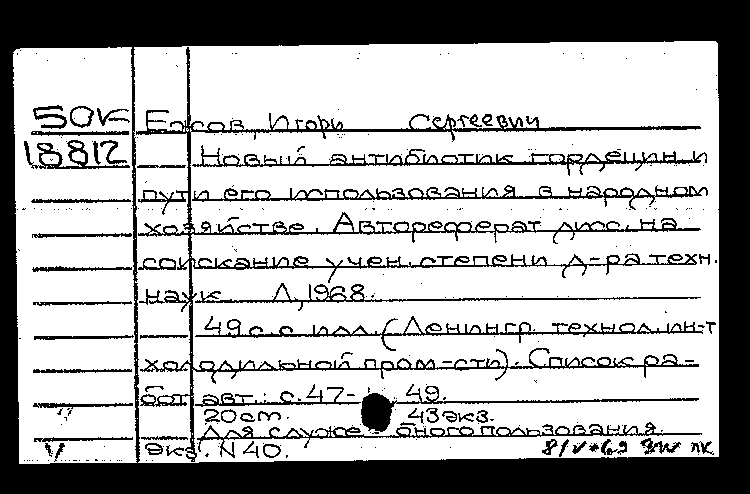 50К Ежов, Игорь Сергеевич
18812 Новый антибиотик гордецин и
пути его использования в народном
хозяйстве. Автореферат дисс. на
соискание учен. степени д-ра техн.
наук Л, 1968.
49 с. с илл. (Ленингр. технол. ин-т
холодильной пром-сти). Список ра-
бот авт.: с. 47-49.
20 ст. 43 экз.
Для служебного пользования.
V Экз. N 40. 8/V-69